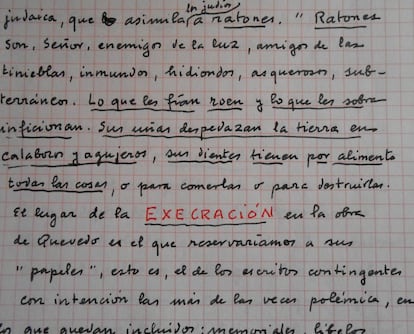 los judíos
judaica, que asimila a ratones. "Ratones
son, Señor, enemigos de la luz, amigos de las
tinieblas, inmundos, hidiondos, asquerosos, sub-
terráneos. Lo que les fían roen y lo que les sobra
inficionan. Sus uñas despedazan la tierra en
calabozos y agujeros, sus dientes tienen por alimento
todas las cosas, o para comerlas o para destruirlas.
El lugar de la EXECRACIÓN en la obra
de Quevedo es el que reservaríamos a sus
"papeles", esto es, el de los escritos contingentes
con intención las más de las veces polémica, en
los que quedan incluidos: memoriales, libelos